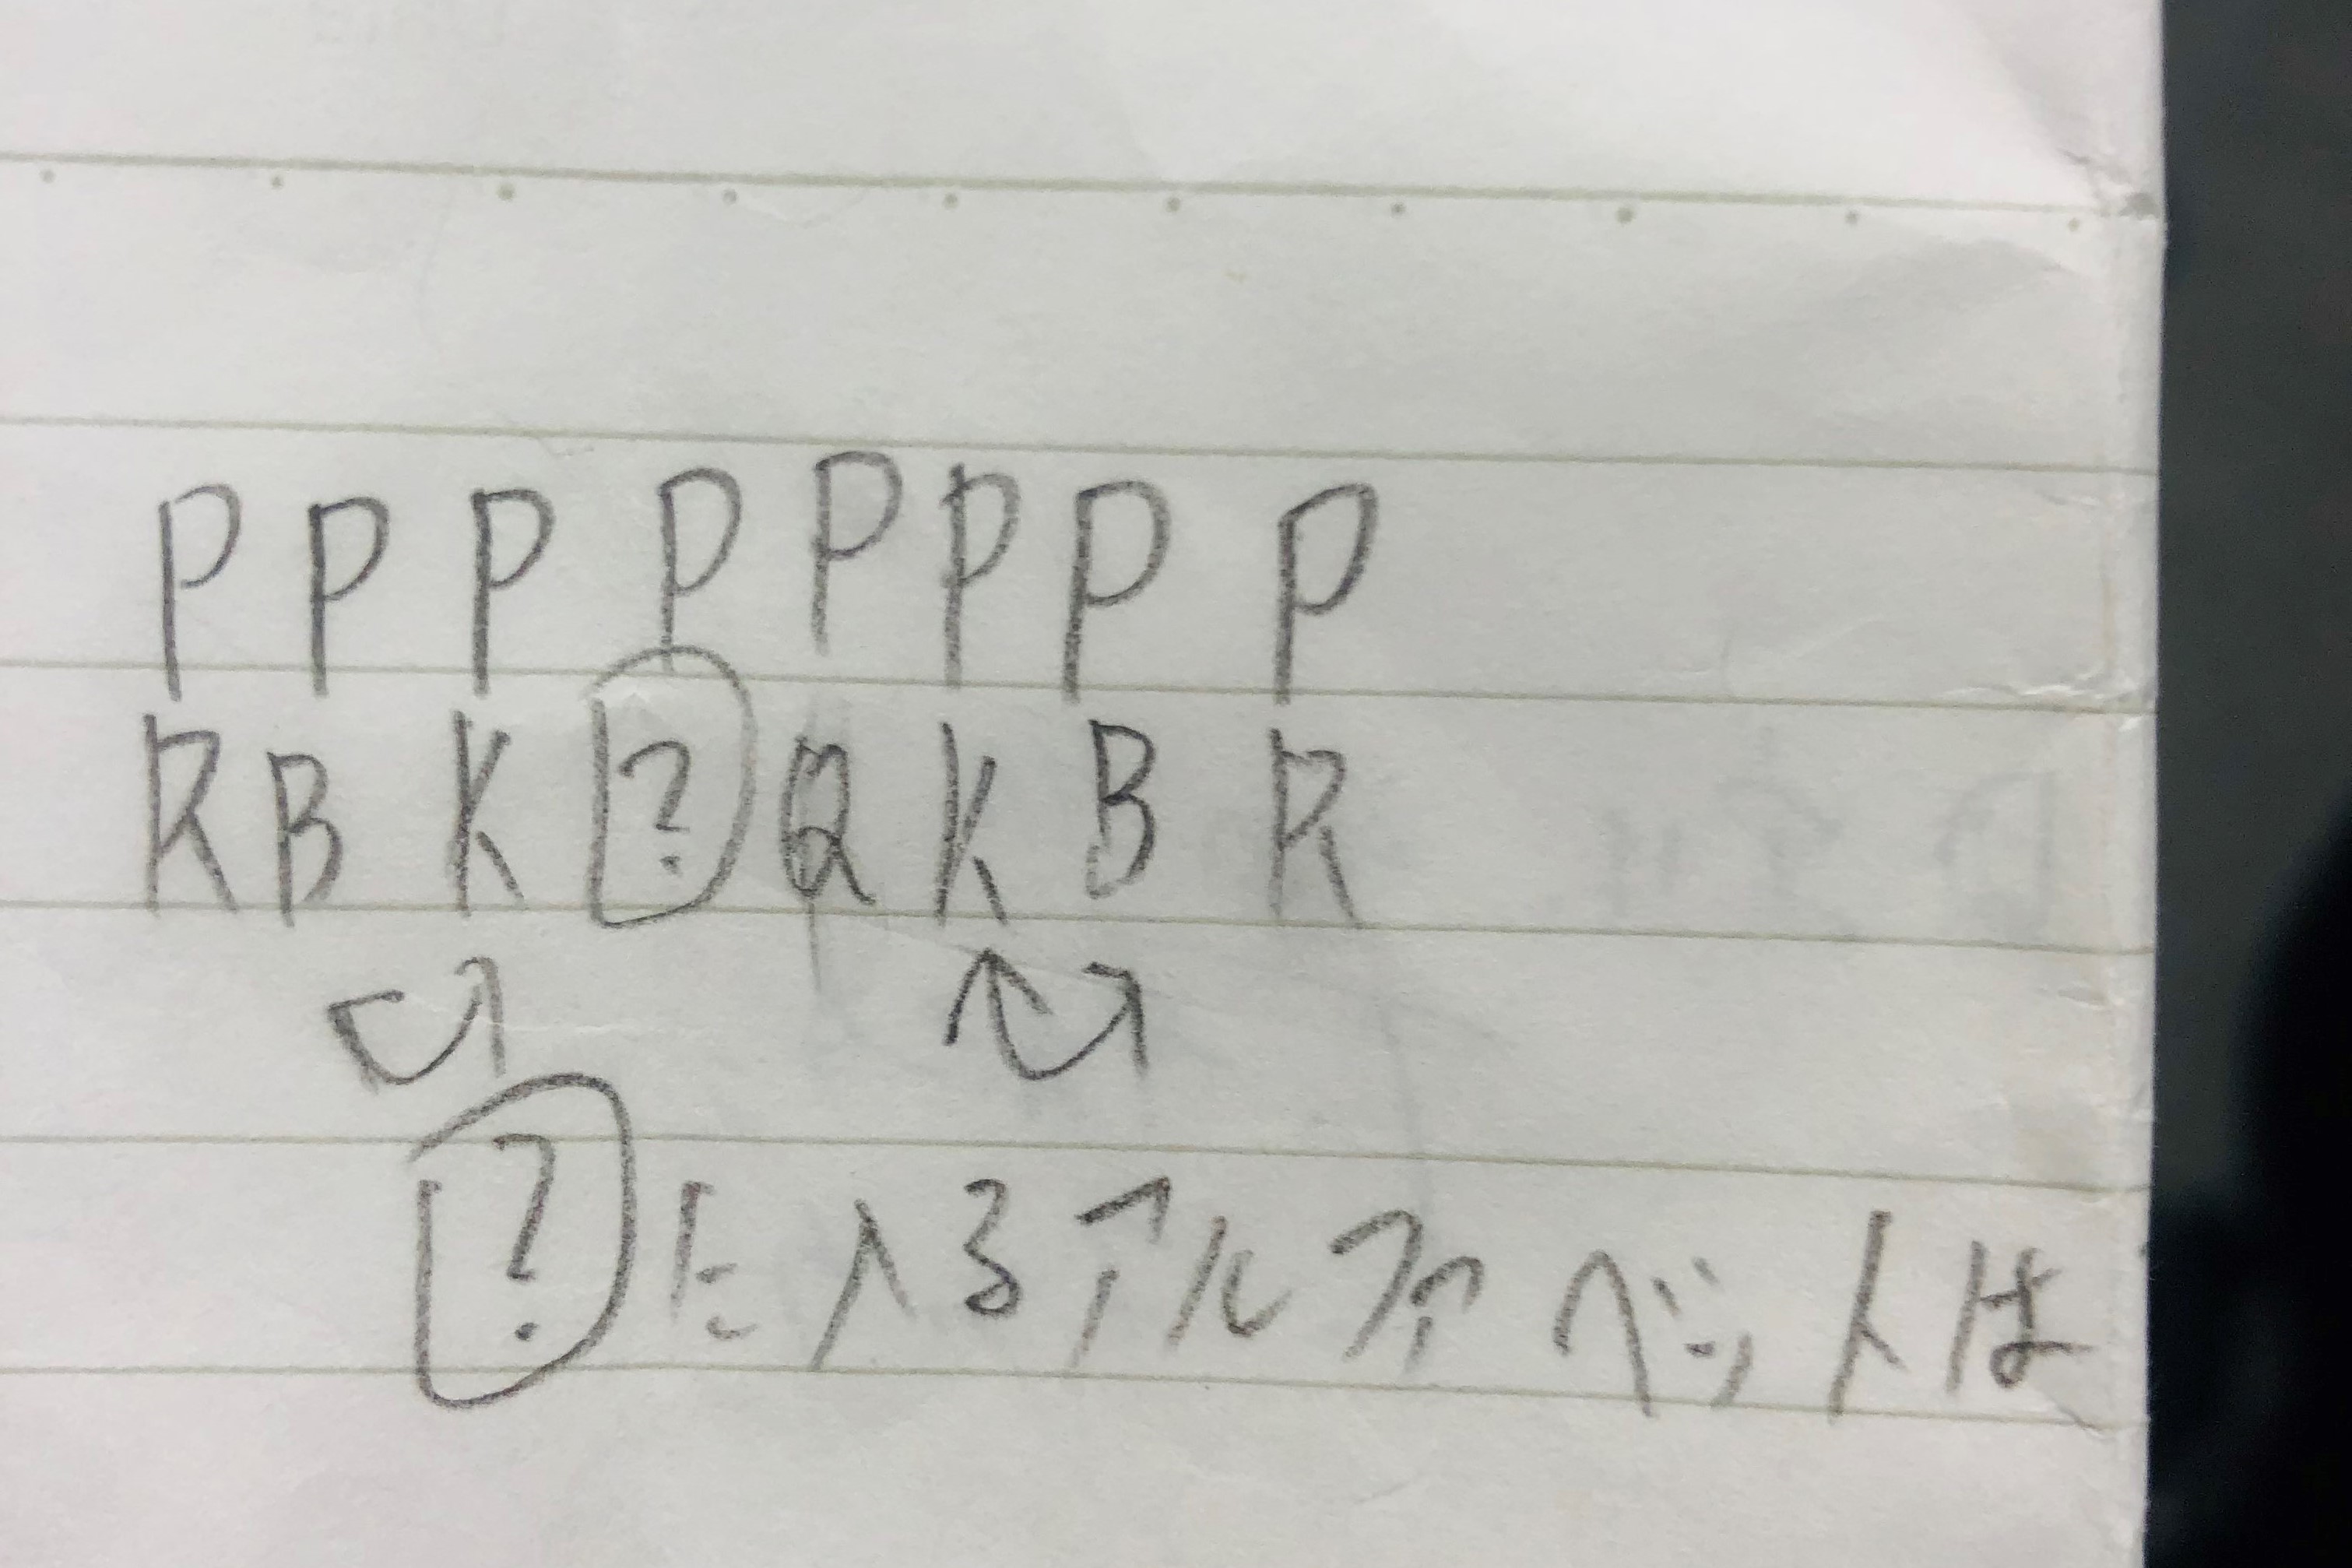 P P P P P P P P
R B K ? Q K B R
? に入るアルファベットは